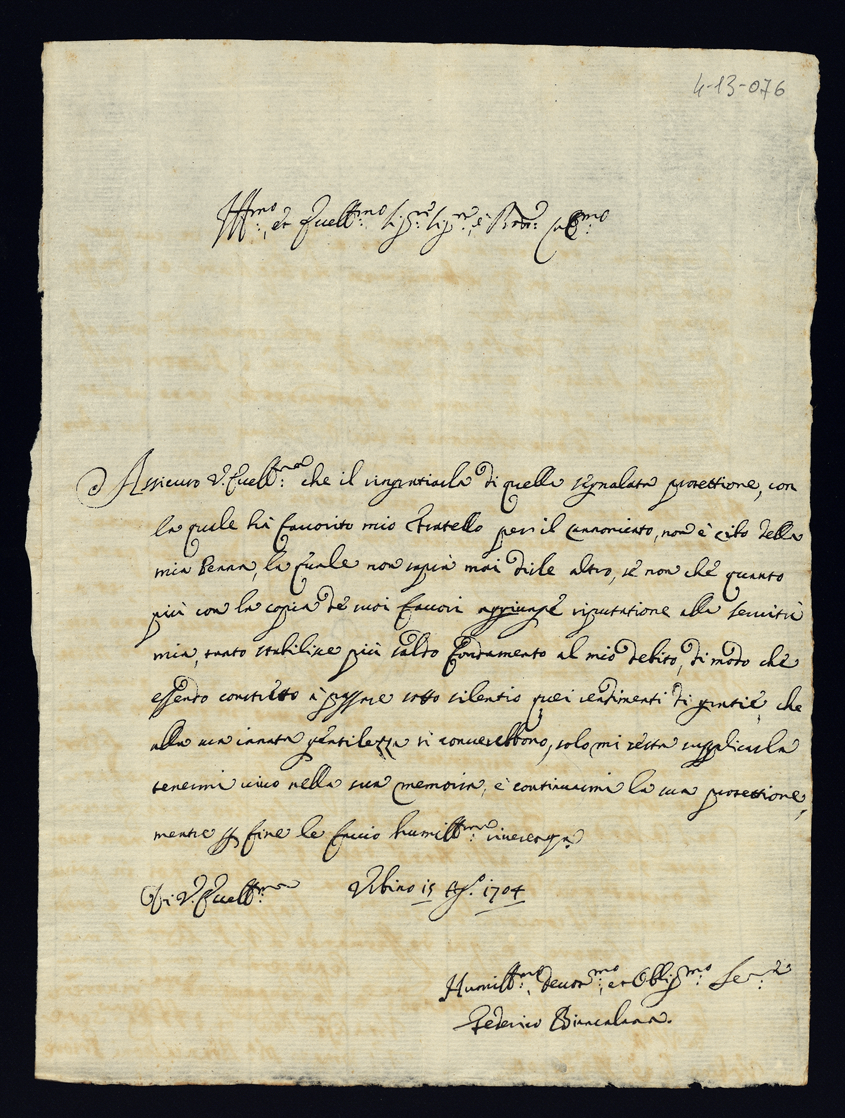 4-13-076
Ill.mo, et Ecell.mo Sig.re Sig.re, e Pron: Col.mo
Assicuro V. Ecell.nza che il ringratiarla di quella segnalata protettione, con
la quale hà favorito mio Fratello per il canonicato, non è cibo della
mia Penna, la quale non saprà mai dirle altro, se non che quanto
più con la copia de suoi favori aggiunge riputatione alla servitù
mia, tanto stabilisce più saldo fondamento al mio debito, di modo che
essendo constretto à passare sotto silentio quei rendimenti di gratie, che
alla sua innata gentilezza si converebbono, solo mi resta supplicarla
tenermi vivo nella sua memoria, e continuarmi la sua protettione,
mentre p fine le faccio humill.ma riverenza
Di V. Ecell.nza Urbino 15 Ag.o 1704
Humill.mo, Devot.mo, et Oblig.mo Ser.re
Federico Biancalana.